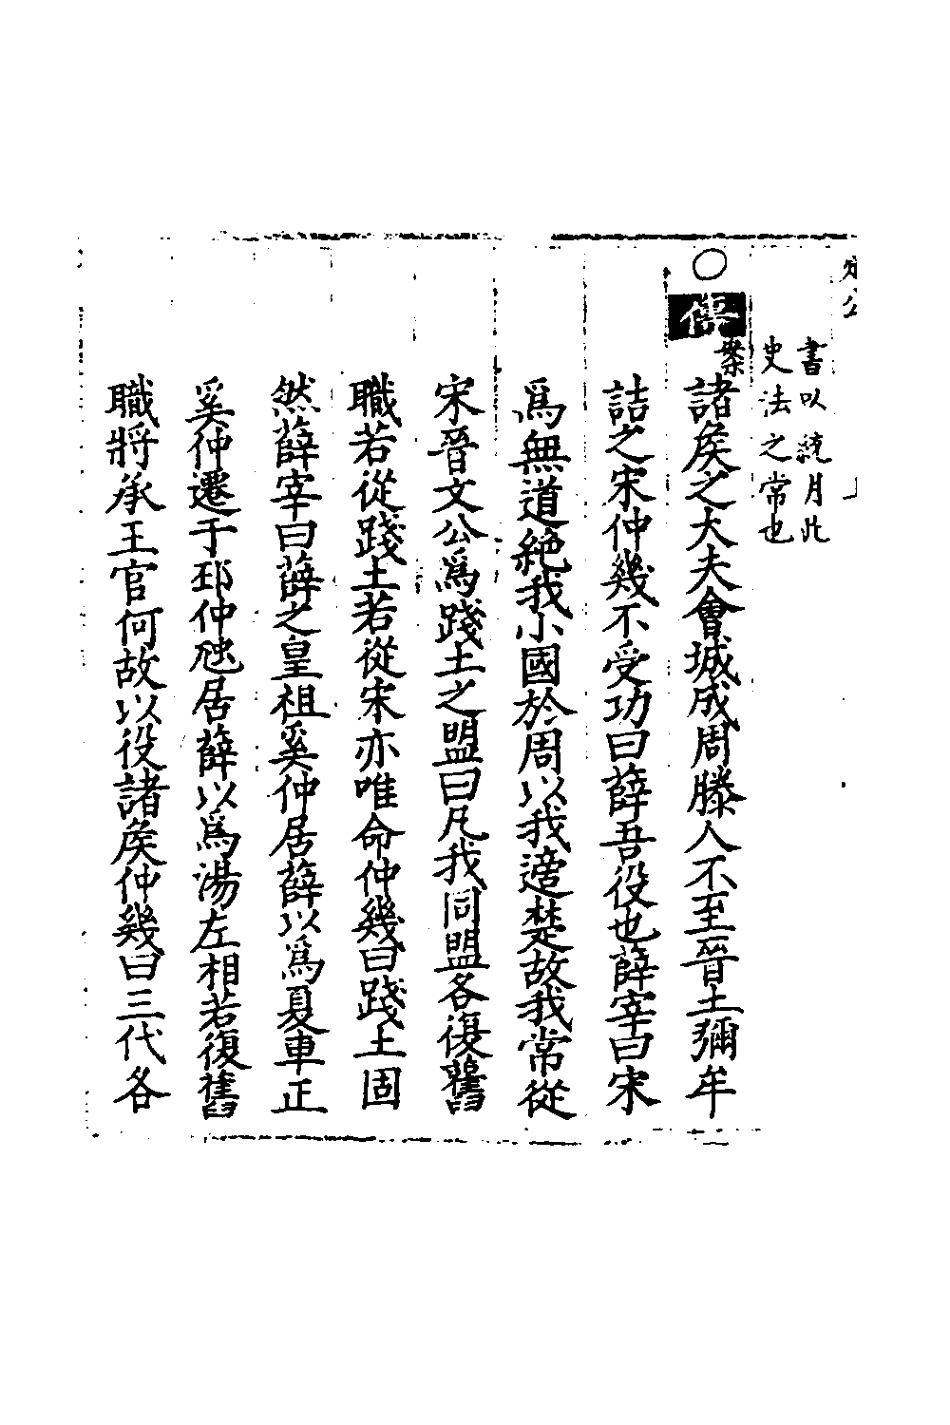 書以綂月此
史法之常也
○傳案諸侯之大夫會城成周滕人不至晉士彌牟
詰之宋仲幾不受功曰薛吾役也薛宰曰宋
爲無道絶我小國於周以我適楚故我常從
宋晉文公爲踐土之盟曰凡我同盟各復舊
職若從踐土若從宋亦唯命仲幾曰踐土固
然薛宰曰薛之皇祖奚仲居薛以爲夏車正
奚仲遷于邳仲虺居薛以爲湯左相若復舊
職將承王官何故以役諸侯仲幾曰三代各